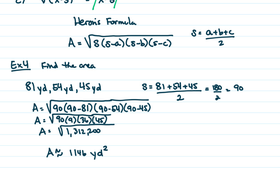 Heron's Formula
A = √s(s-a)(s-b)(s-c)    s = a+b+c/2
Ex4 Find the area
81 yd, 54 yd, 45 yd    s = 81+54+45/2 = 180/2 = 90
A = √90(90-81)(90-54)(90-45)
A = √90(9)(36)(45)
A = √1,312,200
A ≈ 1146 yd²